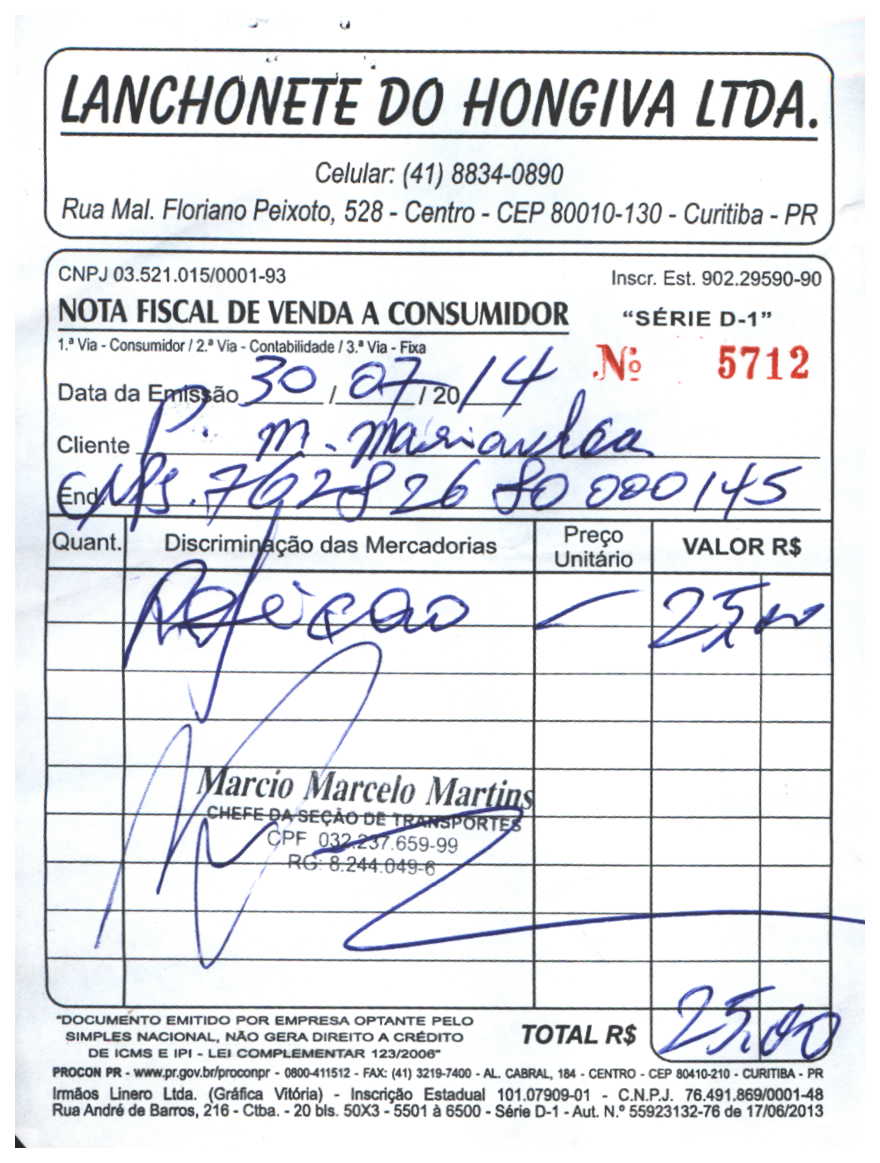 LANCHONETE DO HONGIVA LTDA.
Celular: (41) 8834-0890
Rua Mal. Floriano Peixoto, 528 - Centro - CEP 80010-130 - Curitiba - PR
CNPJ 03.521.015/0001-93 Inscr. Est. 902.29590-90
NOTA FISCAL DE VENDA A CONSUMIDOR "SÉRIE D-1"
1.ª Via - Consumidor / 2.ª Via - Contabilidade / 3.ª Via - Fixa
Nº 5712
Data da Emissão 30 / 07 / 20 14
Cliente P. M. Mariandea
End. CNPJ. 76282680000145
Quant. Discriminação das Mercadorias Preço Unitário VALOR R$
Refeição 25,00
Marcio Marcelo Martins
CHEFE DA SEÇÃO DE TRANSPORTES
CPF 032.237.659-99
RG: 8.244.049-6
"DOCUMENTO EMITIDO POR EMPRESA OPTANTE PELO
SIMPLES NACIONAL, NÃO GERA DIREITO A CRÉDITO
DE ICMS E IPI - LEI COMPLEMENTAR 123/2006"
TOTAL R$ 25,00
PROCON PR - www.pr.gov.br/proconpr - 0800-411512 - FAX: (41) 3219-7400 - AL. CABRAL, 184 - CENTRO - CEP 80410-210 - CURITIBA - PR
Irmãos Linero Ltda. (Gráfica Vitória) - Inscrição Estadual 101.07909-01 - C.N.P.J. 76.491.869/0001-48
Rua André de Barros, 216 - Ctba. - 20 bls. 50X3 - 5501 à 6500 - Série D-1 - Aut. N.º 55923132-76 de 17/06/2013